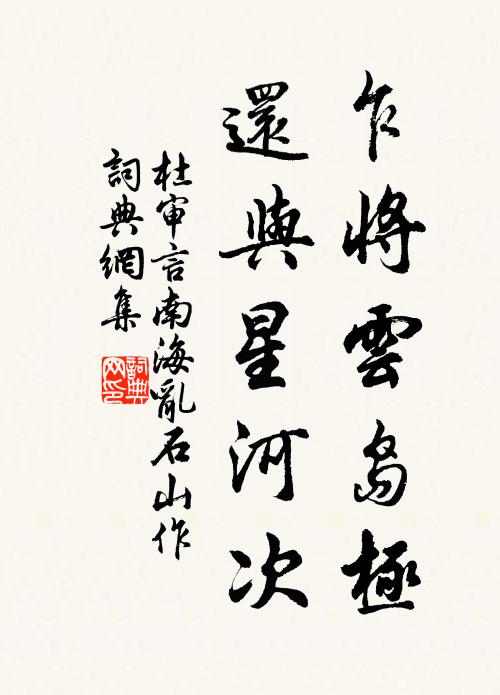 乍將雲島極
還與星河次
杜審言南海亂石山作
詞典網集
詞典网印